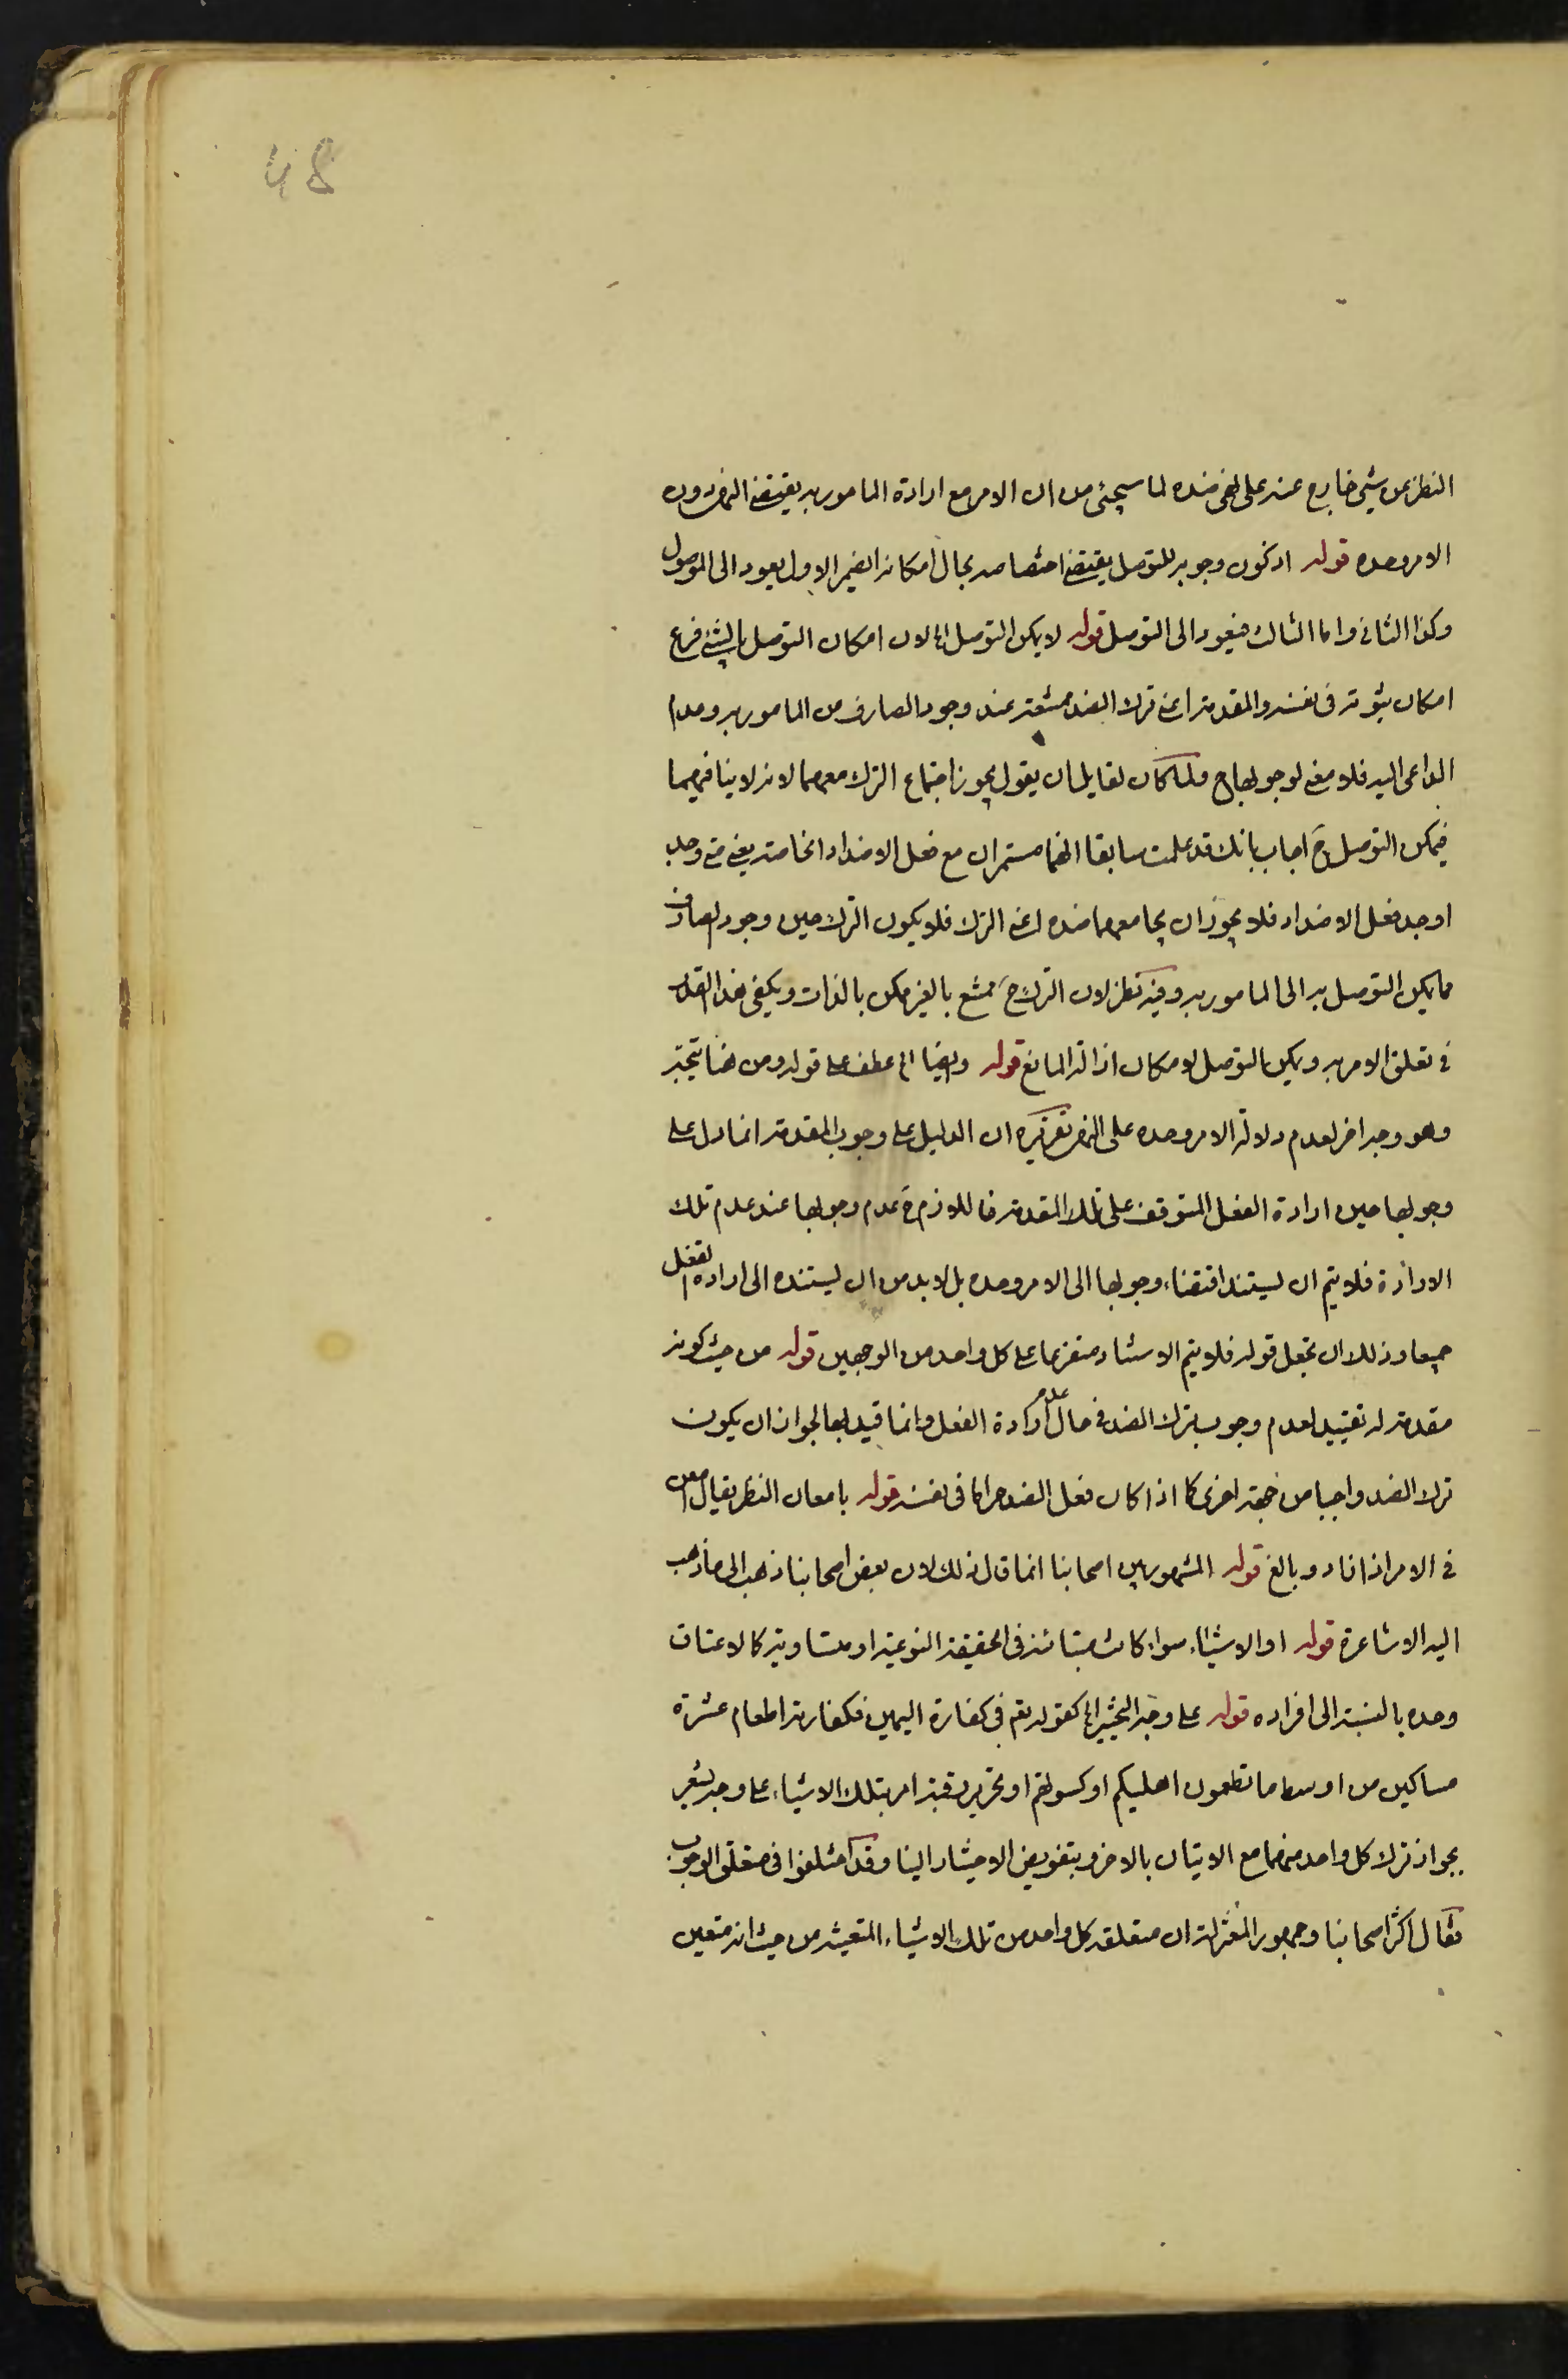 48
النظر عن شيء خارج عنه على نهى ضده لما سيجئ من ان الامر مع ارادة المامور به يقتضى النهى دون
الامر وحده قوله اذ كون وجوبه للتوصل يقتضى اختصاصه بحال امكانه الضمير الاول يعود الى الموصول
وكذا الثانى واما الثالث فيعود الى التوصل قوله لا يمكن التوصل اه لان امكان التوصل بالشئ فرع
امكان ثبوته فى نفسه والمقدمة اعنى ترك الضد ممتنعة عند وجود الصارف من المامور به وعدم
الداعى اليه فلا معنى لوجوبها ح ولما كان لقايل ان يقول يجوز اجتماع الترك معهما لانه لا ينافيهما
فيمكن التوصل به ح اجاب بانك قد علمت سابقا انهما مستمران مع فعل الاضداد الخاصة يعنى متى وجدا
اوجد فعل الاضداد فلا يجوز ان يجامعهما ضده اعنى الترك فلا يكون الترك حين وجود الصارف
مما يمكن التوصل به الى المامور به وفيه نظر لان الترك ح ممتنع بالغير ممكن بالذات ويكفى هذا القدر
فى تعلق الامر به ويمكن التوصل لامكان ازالة المانع قوله وايضا اه عطف على قوله ومن هنا يتجه
وهو وجه اخر لعدم دلالة الامر وحده على النهى تقريره ان الدليل على وجوب المقدمة انما دل على
وجوبها حين ارادة الفعل المتوقف على تلك المقدمة فاللازم ح عدم وجوبها عند عدم تلك
الارادة فلا يتم ان يستند اقتضاء وجوبها الى الامر وحده بل لا بد من ان يستنده الى ارادة الفعل
جميعا وذلك ان تجعل قوله فلا يتم الاستناد متفرعا على كل واحد من الوجهين قوله من حيث كونه
مقدمة له تقييد لعدم وجوب ترك الضد فى حال عدم ارادة الفعل وانما قيد بها لجواز ان يكون
ترك الضد واجبا من جهة اخرى كما اذا كان فعل الضد حراما فى نفسه قوله بامعان النظر يقال امعن
فى الامر اذا ناد وبالغ قوله المشهور بين اصحابنا انما قال ذلك لان بعض اصحابنا ذهب الى ما ذهب
اليه الاشاعرة قوله او الاشياء سواء كانت متباينة فى الحقيقة النوعية او متساوية كالاعتاق
وحده بالنسبة الى افراده قوله على وجه التخيير اه كقوله تعم فى كفارة اليمين فكفارته اطعام عشرة
مساكين من اوسط ما تطعمون اهليكم او كسوتهم او تحرير رقبة امر بتلك الاشياء على وجه يشعر
بجواز ترك كل واحد منهما مع الاتيان بالاخر وبتفويض الاختيار الينا وقد اختلفوا فى متعلق الوجوب
فقال اكثر اصحابنا وجمهور المعتزلة ان متعلقه كل واحد من تلك الاشياء المتعينة من حيث انه متعين